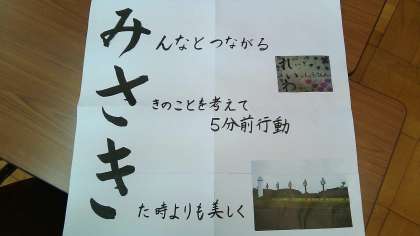 みんなとつながる
さきのことを考えて
5分前行動
きた時よりも美しく
れいわ